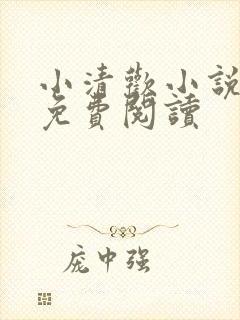 小清歡小說
免費閱讀
庞中强